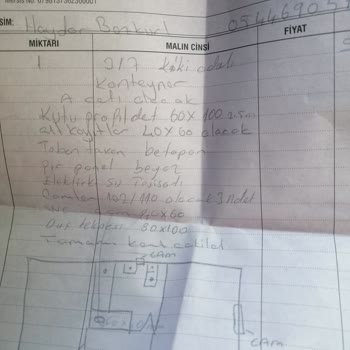 SİM: Haydar Bozkurt 0544690
MİKTARI MALIN CİNSİ FİYAT
1 3/7 iki odalı
Konteyner
A çatı olacak
Kutu profil det 60x100 2.5
alt kayıtlar 40x60 olacak
Taban tavan betopan
pir panel beyaz
Elektirk su Tesisatı
Camlar 107/110 olacak 3 Adet
60x60
Duş teknesi 80x100
Tamamı
CAM
CAM